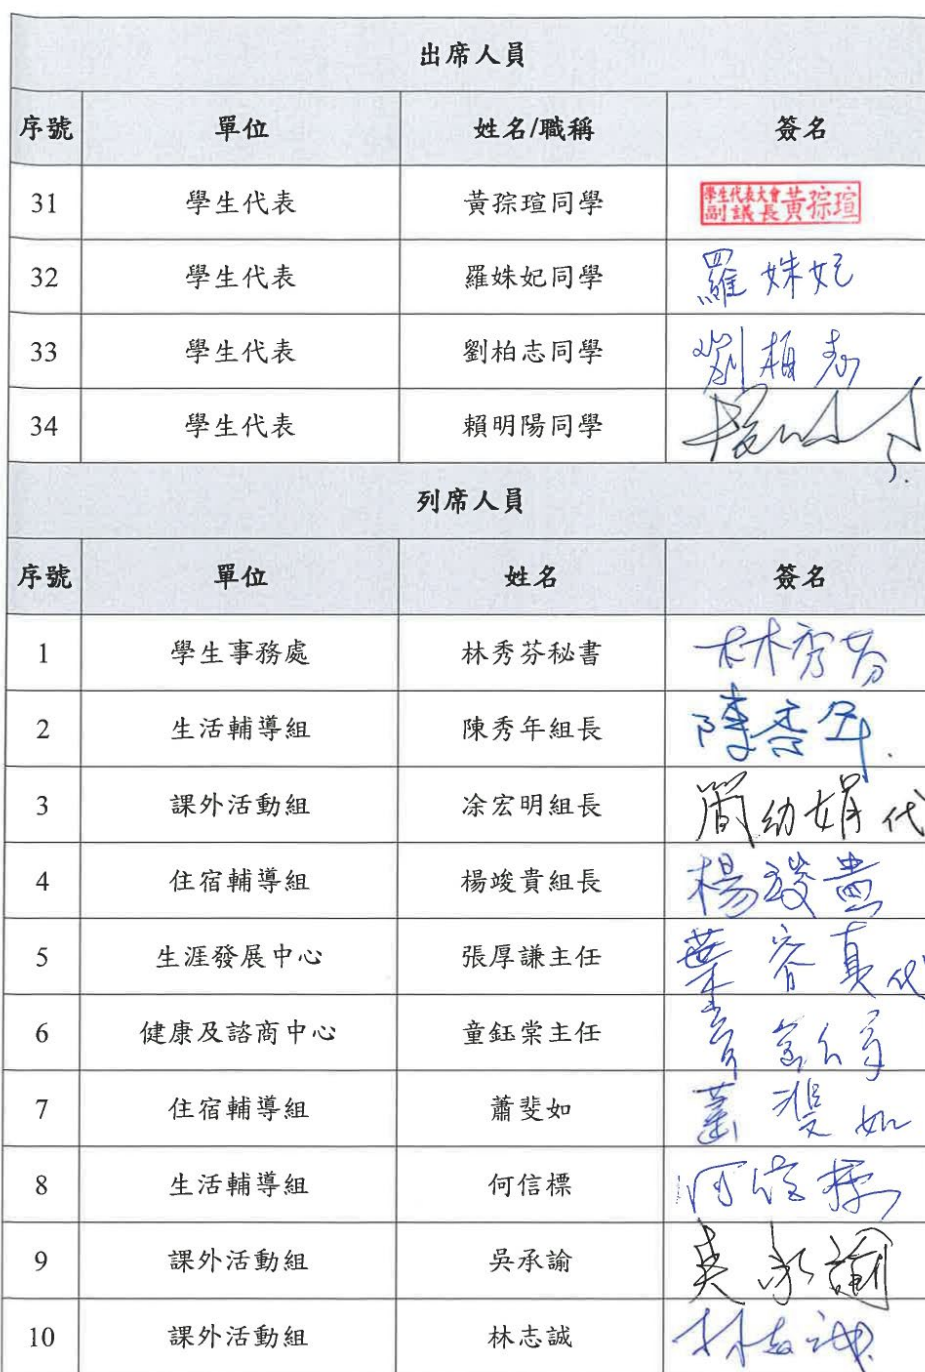 出席人員
序號 單位 姓名/職稱 簽名
31 學生代表 黃孮瑄同學 學生代表大會副議長黃孮瑄
32 學生代表 羅姝妃同學 羅姝妃
33 學生代表 劉柏志同學 劉柏志
34 學生代表 賴明陽同學
列席人員
序號 單位 姓名 簽名
1 學生事務處 林秀芬秘書 林秀芬
2 生活輔導組 陳秀年組長 陳秀年
3 課外活動組 凃宏明組長 簡幼娟代
4 住宿輔導組 楊竣貴組長 楊竣貴
5 生涯發展中心 張厚謙主任 葉容真代
6 健康及諮商中心 童鈺棠主任
7 住宿輔導組 蕭斐如 蕭斐如
8 生活輔導組 何信標 何信標
9 課外活動組 吳承諭 吳承諭
10 課外活動組 林志誠 林志誠